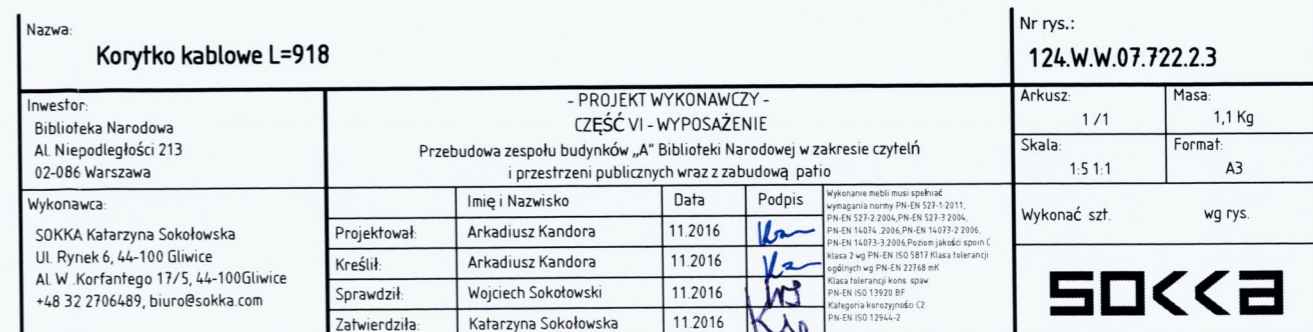 Nazwa:
Korytko kablowe L=918
Nr rys.:
124.W.W.07.722.2.3
Inwestor:
Biblioteka Narodowa
Al. Niepodległości 213
02-086 Warszawa
- PROJEKT WYKONAWCZY -
CZĘŚĆ VI - WYPOSAŻENIE
Przebudowa zespołu budynków „A" Biblioteki Narodowej w zakresie czytelń
i przestrzeni publicznych wraz z zabudową patio
Arkusz:
1 /1
Masa:
1,1 Kg
Skala:
1:5 1:1
Format:
A3
Wykonawca:
SOKKA Katarzyna Sokołowska
Ul. Rynek 6, 44-100 Gliwice
Al. W .Korfantego 17/5, 44-100Gliwice
+48 32 2706489, biuro@sokka.com
Imię i Nazwisko Data Podpis
Projektował: Arkadiusz Kandora 11.2016
Kreślił: Arkadiusz Kandora 11.2016
Sprawdził: Wojciech Sokołowski 11.2016
Zatwierdziła: Katarzyna Sokołowska 11.2016
Wykonanie mebli musi spełniać
wymagania normy PN-EN 527-1:2011,
PN-EN 527-2:2004,PN-EN 527-3:2004,
PN-EN 14074 :2006,PN-EN 14073-2:2006,
PN-EN 14073-3:2006,Poziom jakości spoin C
klasa 2 wg PN-EN ISO 5817 Klasa tolerancji
ogólnych wg PN-EN 22768 mK
Klasa tolerancji kons. spaw
PN-EN ISO 13920 BF
Kategoria korozyjności C2
PN-EN ISO 12944-2
Wykonać szt. wg rys.
SOKKA